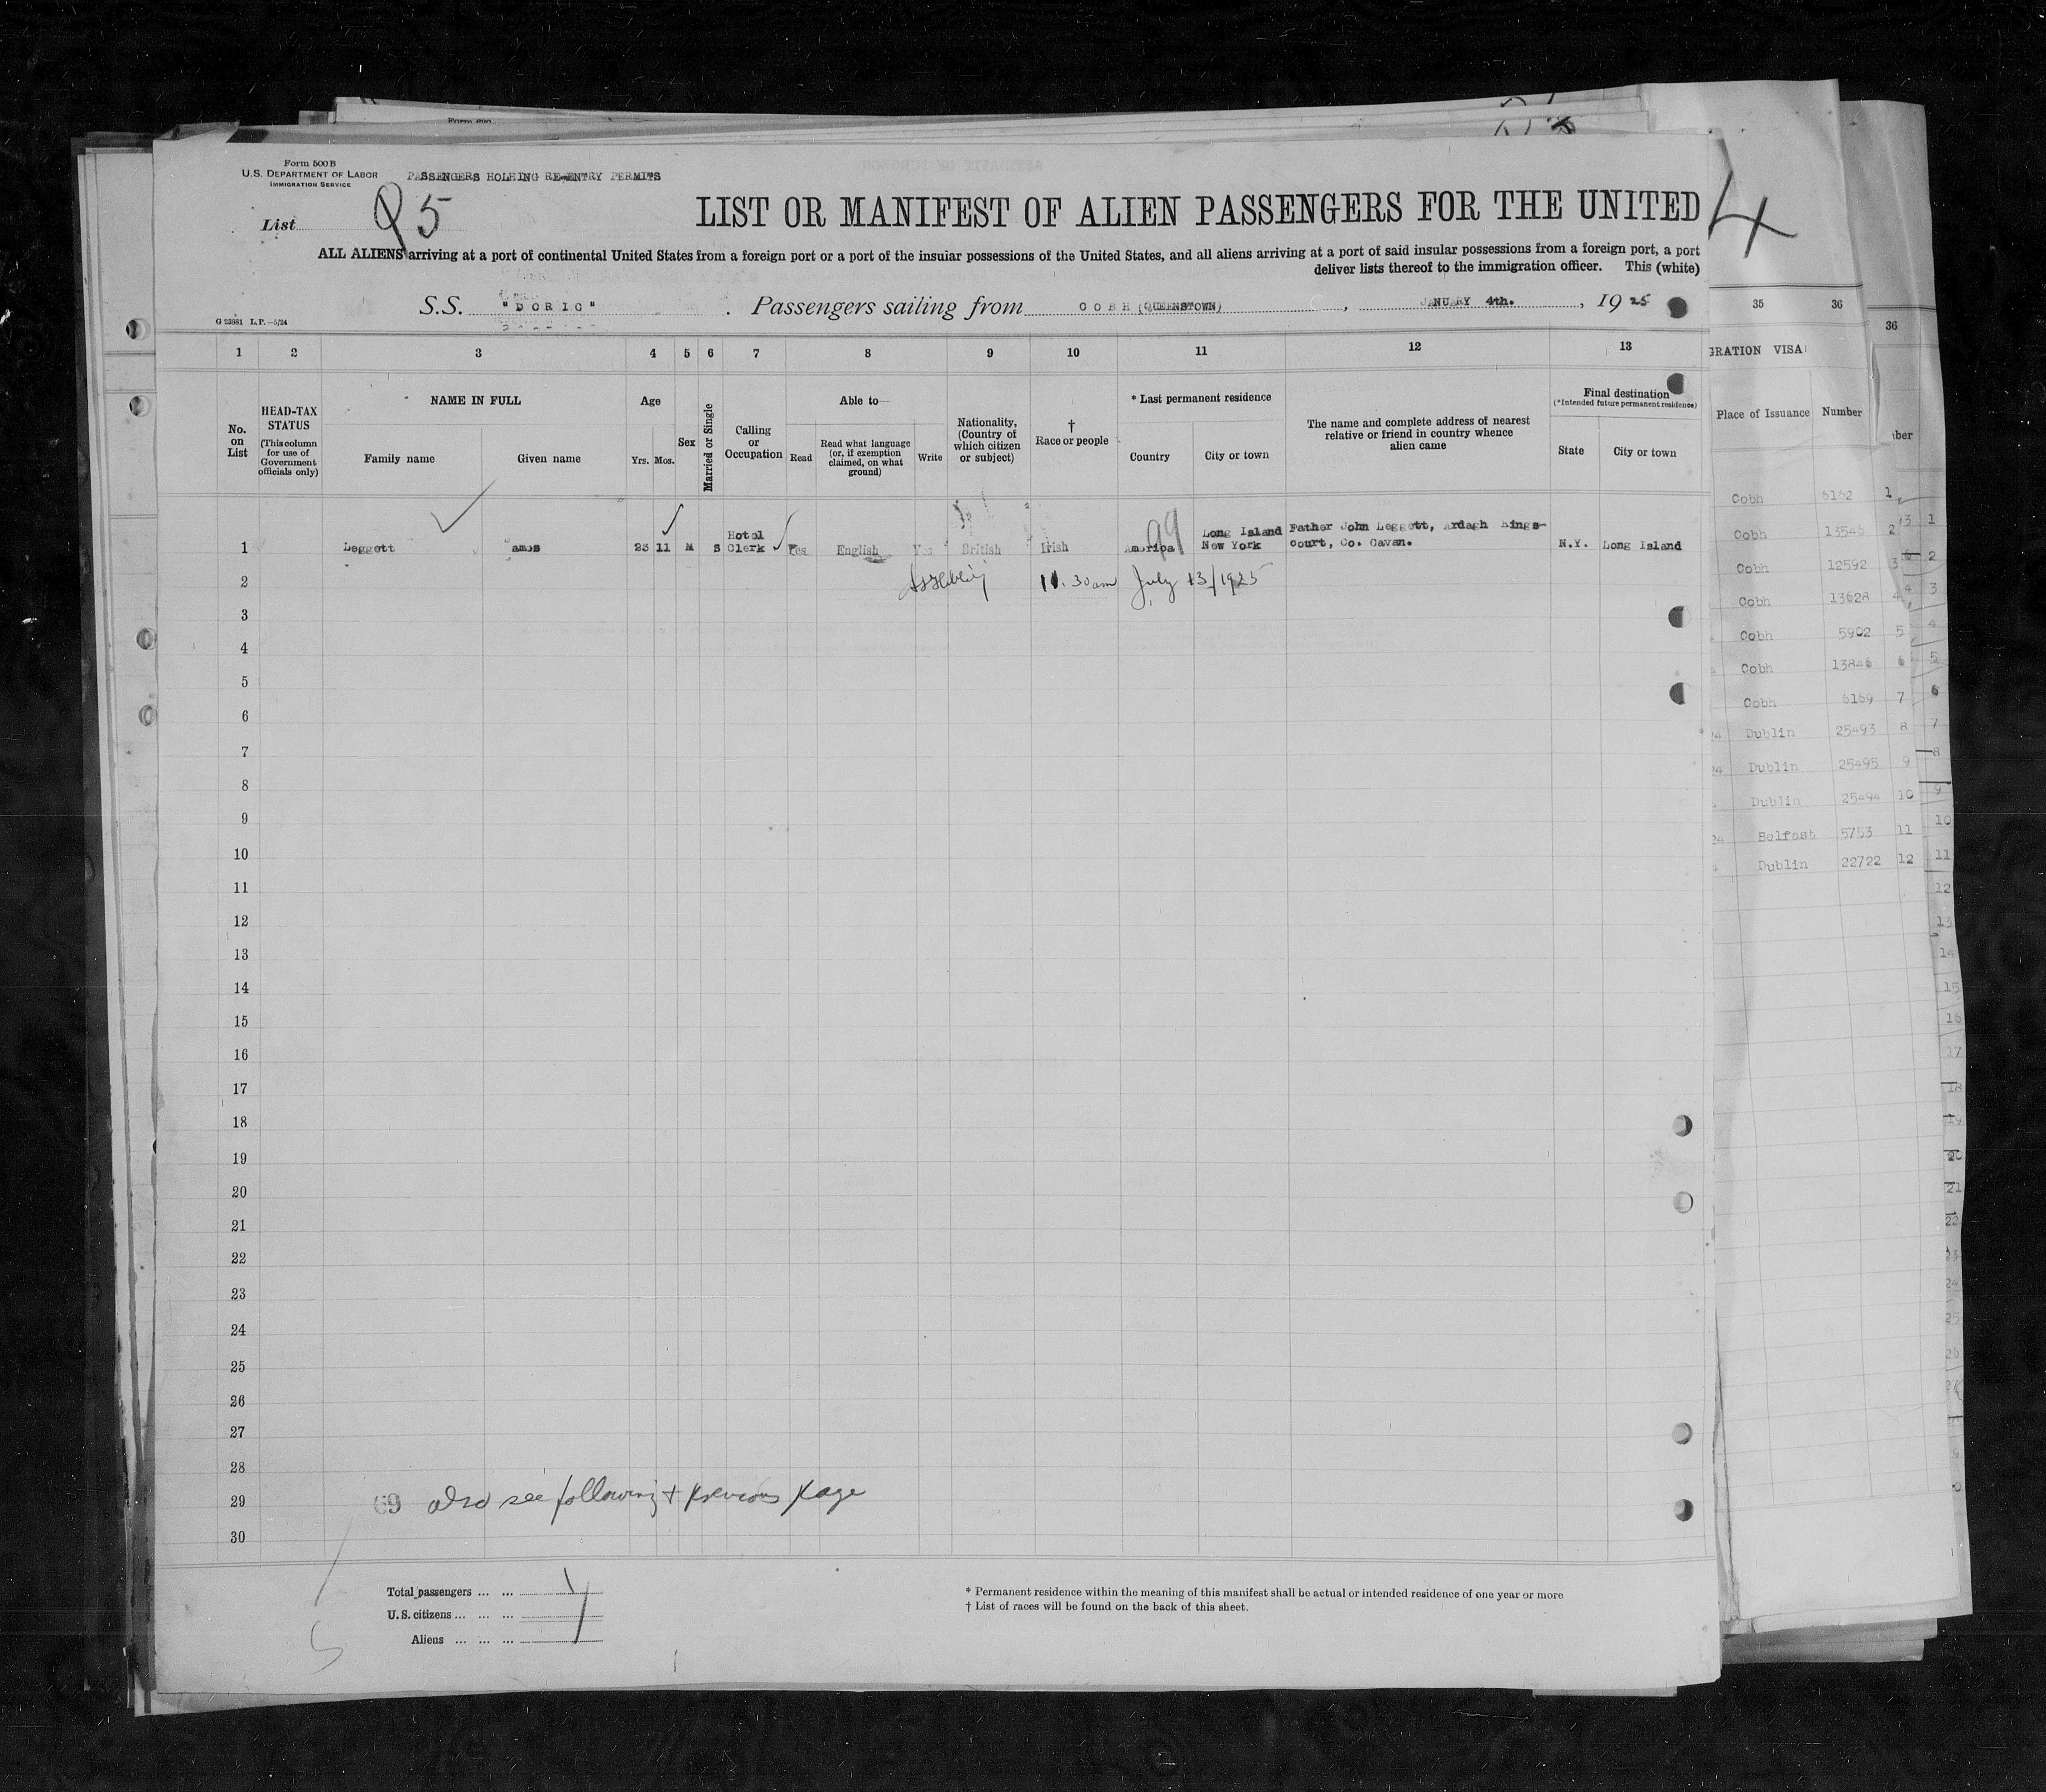 Form 500 B
U.S. DEPARTMENT OF LABOR
IMMIGRATION SERVICE
PASSENGERS HOLHING RE-ENTRY PERMITS
List 5
LIST OR MANIFEST OF ALIEN PASSENGERS FOR THE UNITED
4
ALL ALIENS arriving at a port of continental United States from a foreign port or a port of the insular possessions of the United States, and all aliens arriving at a port of said insular possessions from a foreign port, a port
deliver lists thereof to the immigration officer. This (white)
S.S. "DORIC". Passengers sailing from COBH (QUEENSTOWN), JANUARY 4th., 1925
G 23881 L.P.—5/24
1 2 3 4 5 6 7 8 9 10 11 12 13
No. on List
HEAD-TAX STATUS
(This column for use of Government officials only)
NAME IN FULL
Family name Given name
Age
Yrs. Mos.
Sex
Married or Single
Calling or Occupation
Able to—
Read
Read what language (or, if exemption claimed, on what ground)
Write
Nationality, (Country of which citizen or subject)
† Race or people
* Last permanent residence
Country City or town
The name and complete address of nearest relative or friend in country whence alien came
Final destination
(*Intended future permanent residence)
State City or town
1 Leggett ames 23 11 M S Hotel Clerk Yes English Yes British Irish America Long Island New York Father John Leggett, Ardagh Kings-
court, Co. Cavan. N.Y. Long Island
99
2 11.30 am July 13/1925
3
4
5
6
7
8
9
10
11
12
13
14
15
16
17
18
19
20
21
22
23
24
25
26
27
28
29 69 also see following + previous page
30
Total passengers ... ...
U.S. citizens ... ... ...
Aliens ... ... ...
* Permanent residence within the meaning of this manifest shall be actual or intended residence of one year or more
† List of races will be found on the back of this sheet.
35 36
GRATION VISA
Place of Issuance Number
Cobh 6162 1
Cobh 13546 2
Cobh 12592 3
Cobh 13628 4
Cobh 5902 5
Cobh 13846 6
Cobh 6169 7
24 Dublin 25493 8
24 Dublin 25495 9
Dublin 25494 10
24 Belfast 5753 11
Dublin 22722 12
36
ber
1
2
3
4
5
6
7
8
9
10
11
12
13
14
15
16
17
18
19
20
21
22
23
24
25
26